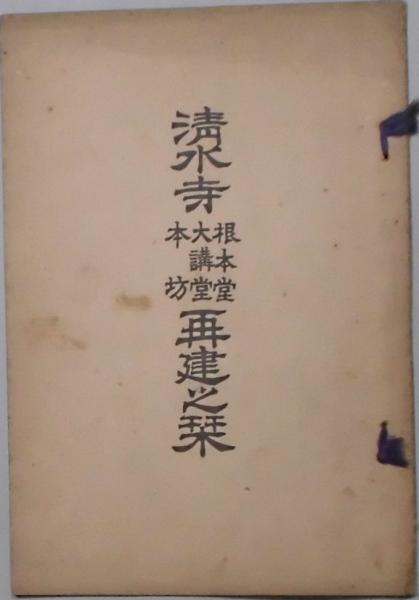 清水寺
根本堂
大講堂
本坊
再建之栞